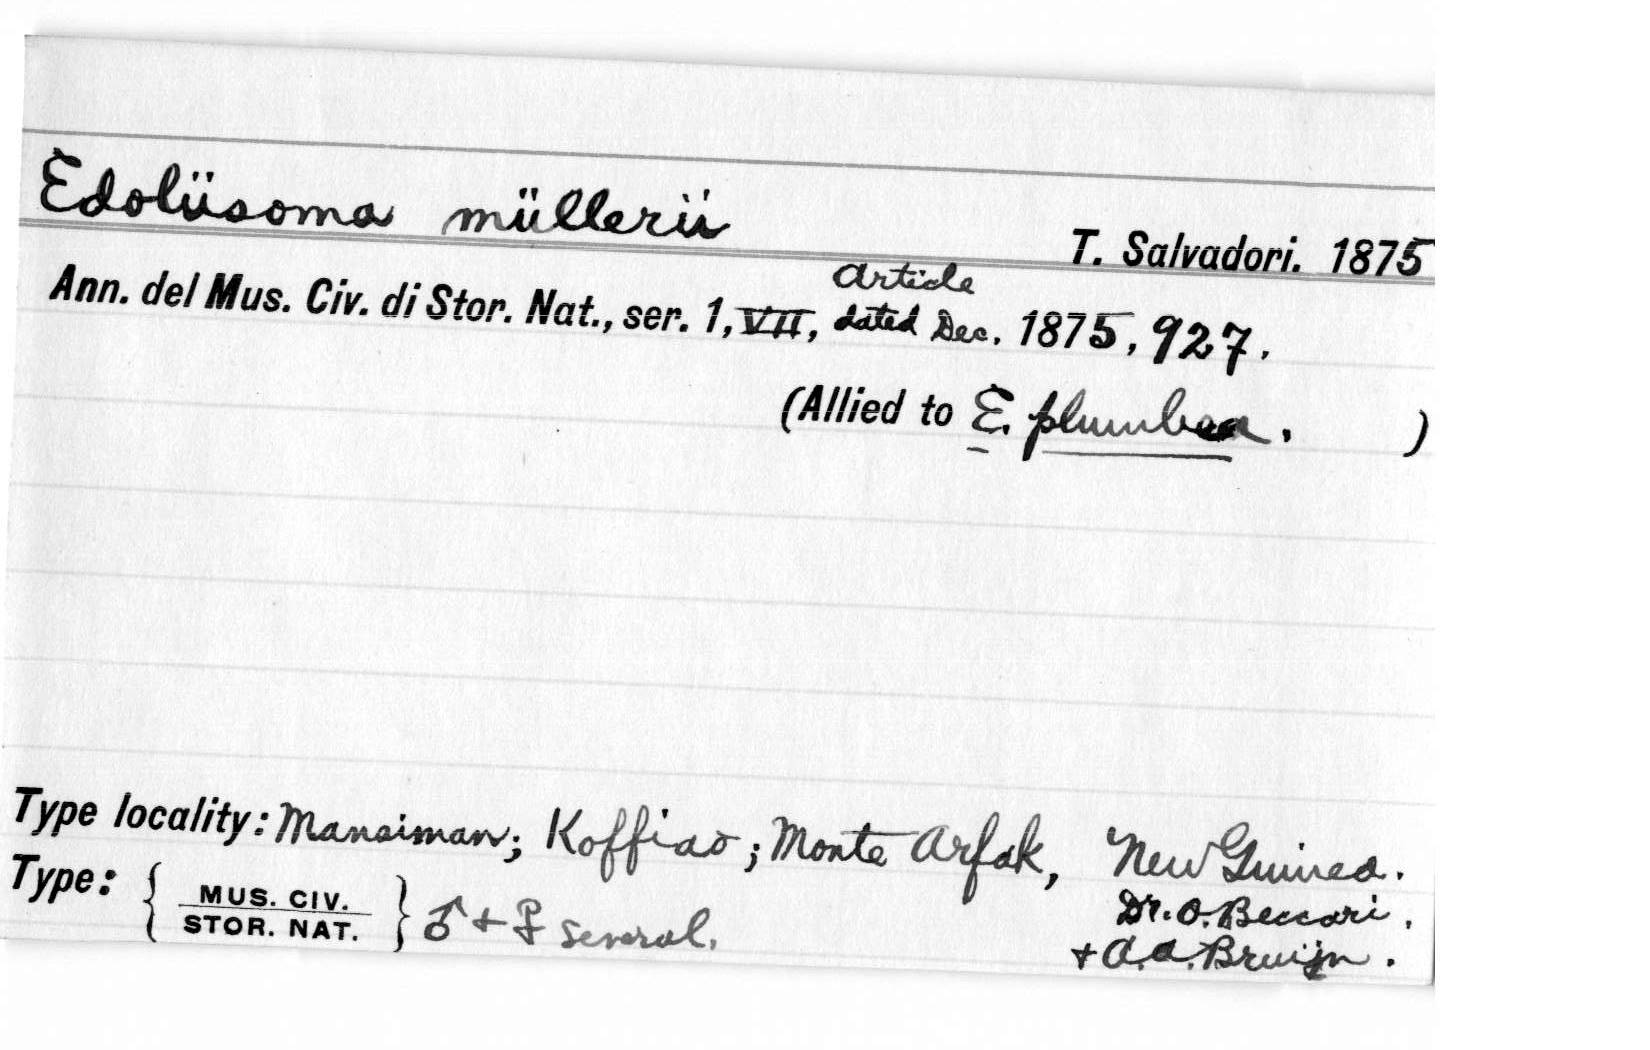 Edoliisoma müllerii
T. Salvadori. 1875
Article
Ann. del Mus. Civ. di Stor. Nat., ser. 1, VII, dated Dec. 1875, 927.
(Allied to E. plumbea. )
Type locality: Mansiman; Koffiao; Monte Arfak, New Guinea.
Type: { MUS. CIV. STOR. NAT. } ♂ + ♀ several.
Dr. O. Beccari,
+ A. A. Bruijn.